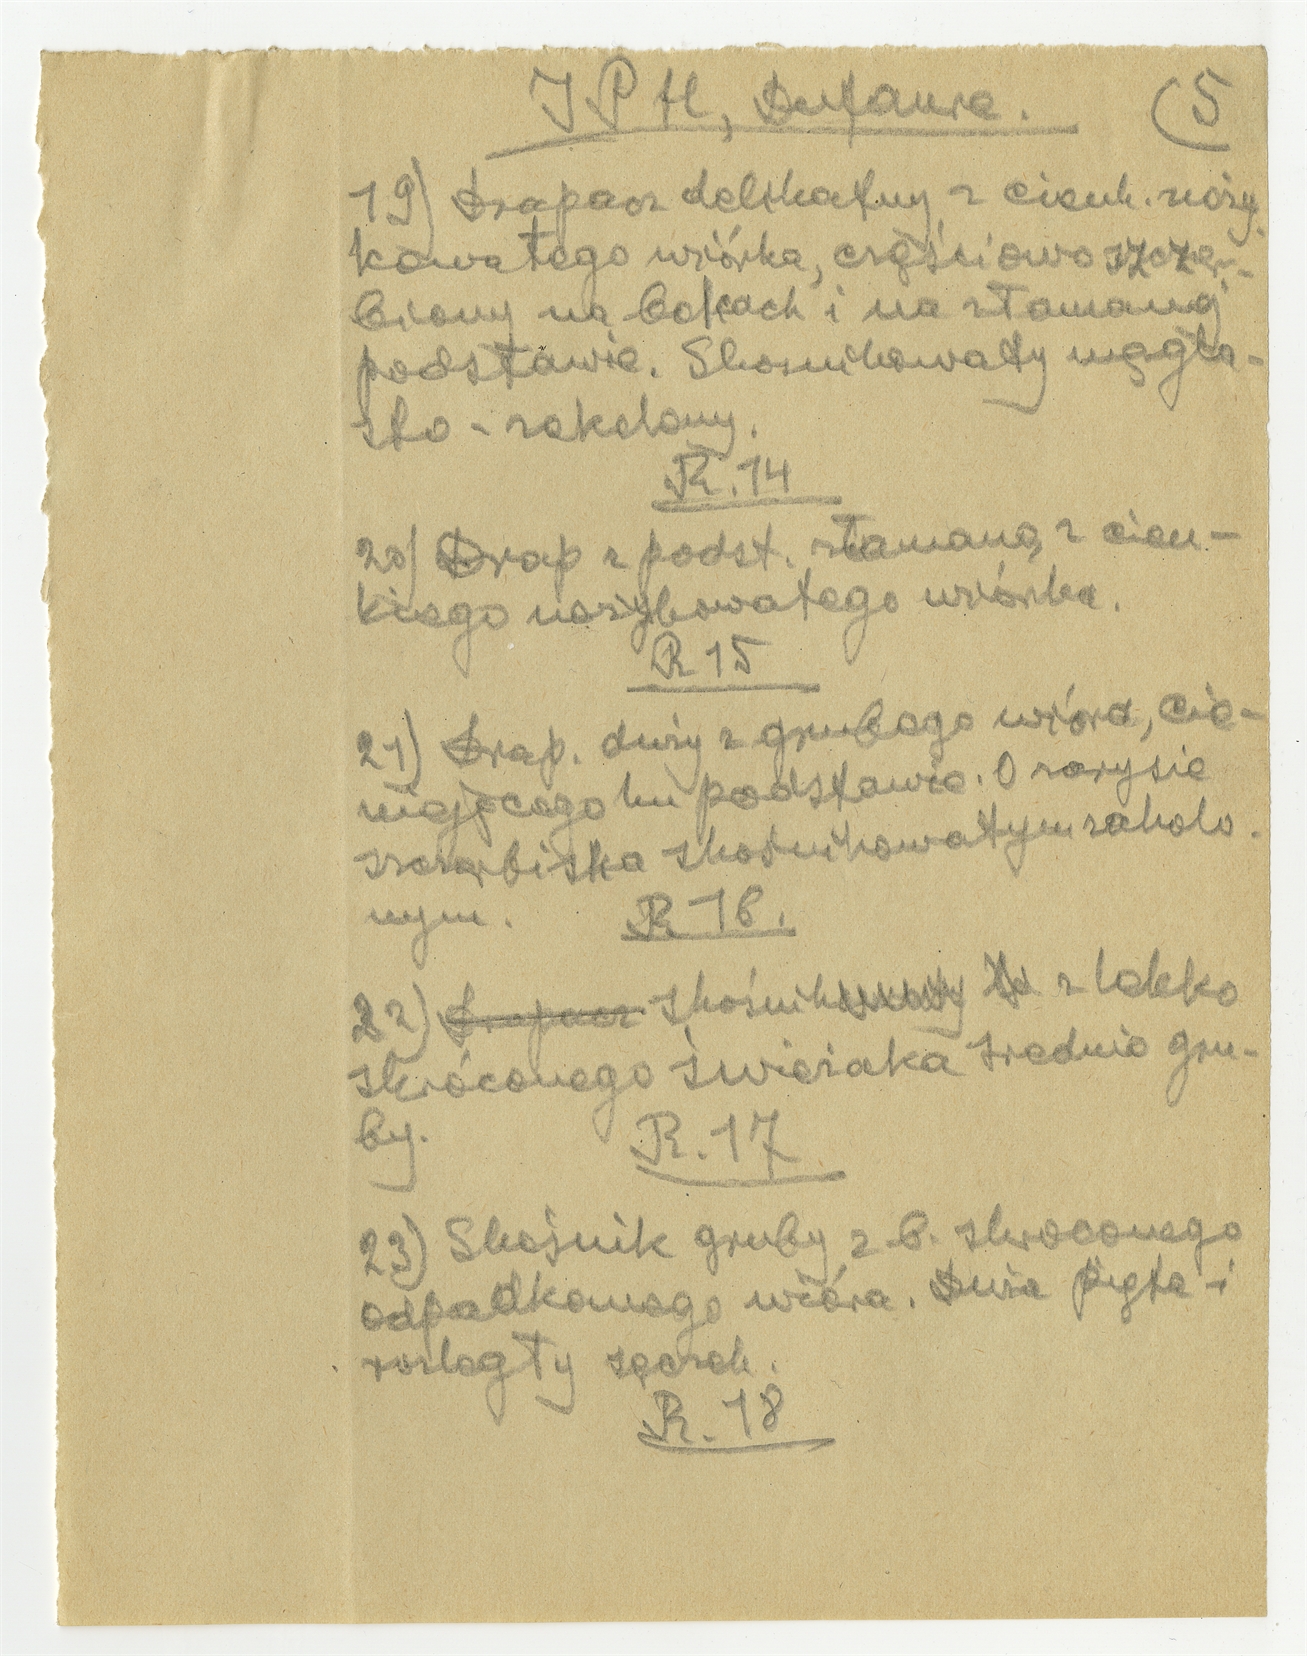 JPH, (5
19) Drapacz delikatny z cienk. noży-
kowatego wiórka, częściowo szczer-
biony na bokach i na złamanej
podstawie. Skośnikowaty węgła-
sto - zakolony.
R. 14
20) Drap z podst. złamaną, z cien-
kiego nożykowatego wiórka.
R 15
21) Drap. duży z grubego wióra, cie-
niejącego ku podstawie. O zarysie
szczerbiska skośnikowatym zakolo-
nym. R 16.
22) Drapacz skośnik z lekko
skróconego świeżaka średnio gru-
by. R. 17
23) Skośnik gruby z b. skroconego
odpadkowego wióra. Duża piętka i
rozległy sęczek.
R. 18